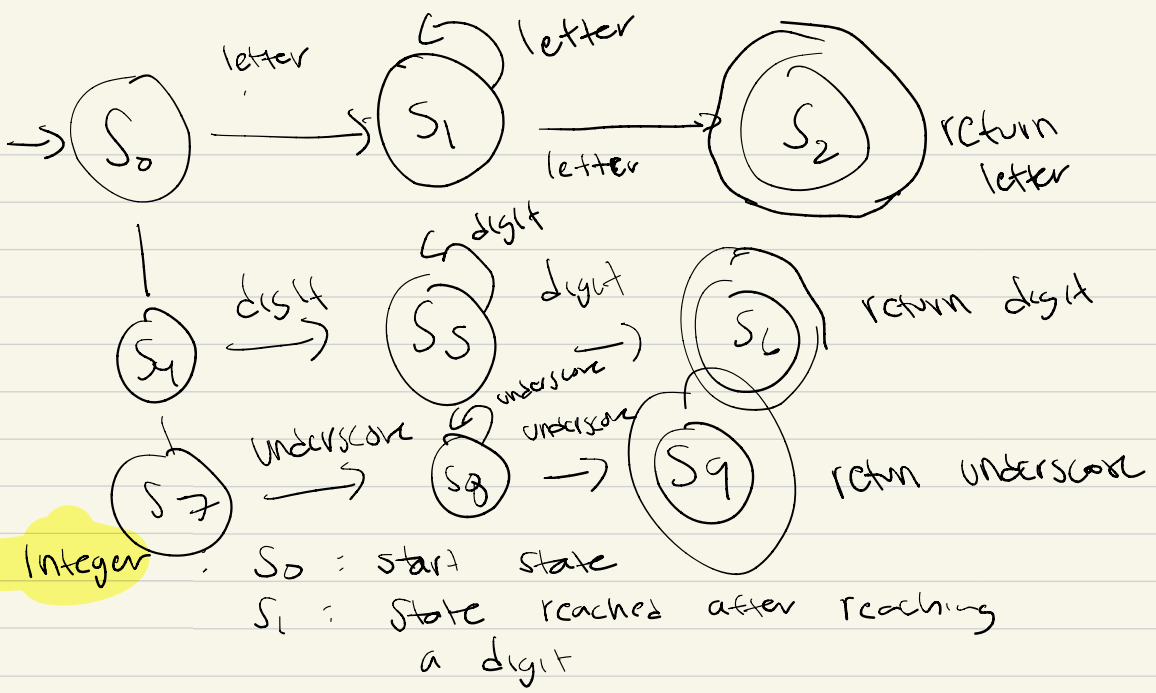 letter
letter
S0
S1
S2
return
letter
letter
digit
digit
digit
S4
S5
S6
return digit
underscore
underscore
underscore
S7
S8
S9
retun underscore
Integer : S0 : start state
S1 : state reached after reaching
a digit